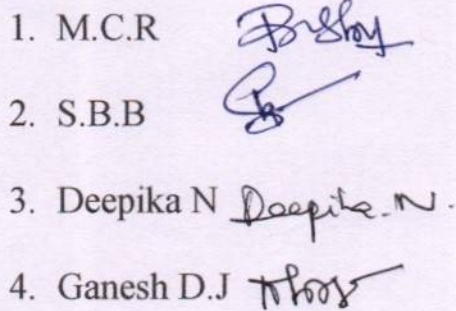 1. M.C.R
2. S.B.B
3. Deepika N Deepika.N.
4. Ganesh D.J